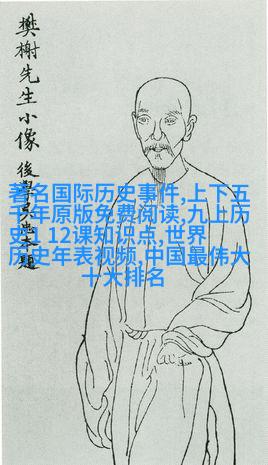 樊榭先生小像
後學
著名国际历史事件,上下五
千年原版免费阅读,九上历
史1 12课知识点,世界
历史年表视频,中国最伟大
十大排名